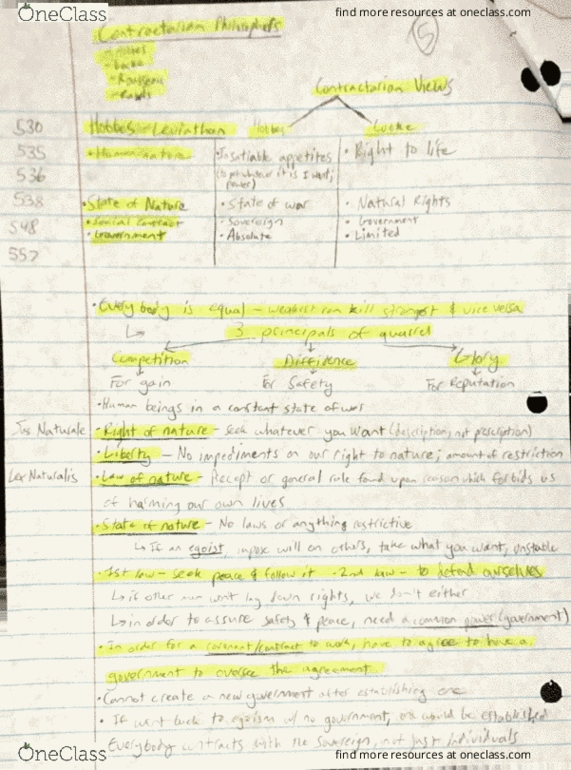 OneClass
find more resources at oneclass.com
Contractarian Philosophers
- Hobbes
- Locke
- Rousseau
- Rawls
5
Contractarian Views
530
Hobbes - Leviathan
Hobbes
Locke
535
• Human nature
• Insatiable appetites
• Right to life
536
(to get whatever it is I want;
power)
538
• State of Nature
• State of war
• Natural Rights
548
• Social contract
• Sovereign
• Government
• Government
• Absolute
• Limited
557
• Everybody is equal - weakest can kill strongest & vice versa
3 principals of quarrel
Competition
Diffidence
Glory
For gain
For Safety
For Reputation
• Human beings in a constant state of war
Jus Naturale
• Right of nature - seek whatever you want (description, not prescription)
• Liberty - No impediments on our right to nature; amount of restriction
Lex Naturalis
• Law of nature - Precept or general rule found upon reason which forbids us
of harming our own lives
• State of nature - No laws or anything restrictive
If an egoist, impose will on others, take what you want, unstable
• 1st law - seek peace & follow it - 2nd law - to defend ourselves
if other men won't lay down rights, we don't either
in order to assure safety & peace, need a common power (government)
• In order for a covenant/contract to work, have to agree to have a
government to oversee the agreement.
• Cannot create a new government after establishing one
• If went back to egoism w/ no government, would be established
Everybody contracts with the sovereign, not just individuals
OneClass
find more resources at oneclass.com